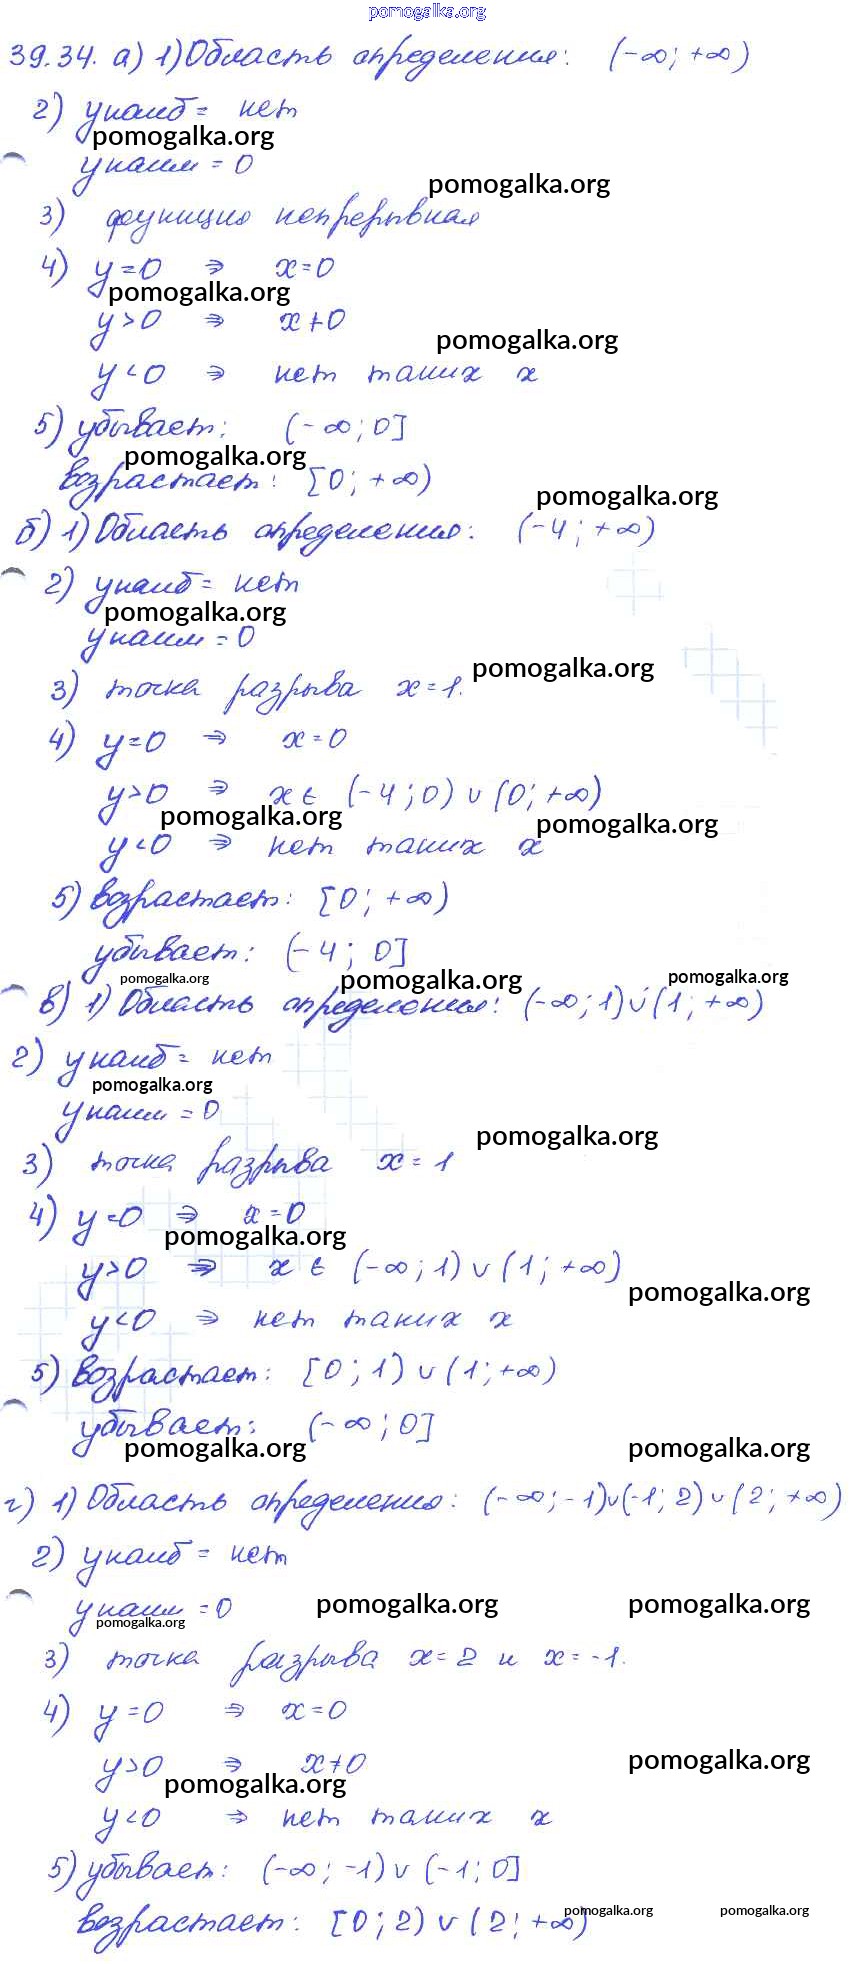 pomogalka.org
39.34. а) 1) Область определения: (-∞; +∞)
2) yнаиб = нет
pomogalka.org
yнаим = 0
pomogalka.org
3) функция непрерывная
4) y=0 ⇒ x=0
pomogalka.org
y>0 ⇒ x≠0
pomogalka.org
y<0 ⇒ нет таких x
5) убывает: (-∞; 0]
pomogalka.org
возрастает: [0; +∞)
pomogalka.org
б) 1) Область определения: (-4; +∞)
2) yнаиб = нет
pomogalka.org
yнаим = 0
pomogalka.org
3) точка разрыва x=1.
4) y=0 ⇒ x=0
y>0 ⇒ x ∈ (-4; 0) ∪ (0; +∞)
pomogalka.org pomogalka.org
y<0 ⇒ нет таких x
5) возрастает: [0; +∞)
убывает: (-4; 0]
pomogalka.org pomogalka.org pomogalka.org
в) 1) Область определения: (-∞; 1) ∪ (1; +∞)
2) yнаиб = нет
pomogalka.org
yнаим = 0
pomogalka.org
3) точка разрыва x = 1
4) y=0 ⇒ x=0
pomogalka.org
y>0 ⇒ x ∈ (-∞; 1) ∪ (1; +∞)
pomogalka.org
y<0 ⇒ нет таких x
5) возрастает: [0; 1) ∪ (1; +∞)
убывает: (-∞; 0]
pomogalka.org pomogalka.org
г) 1) Область определения: (-∞; -1) ∪ (-1; 2) ∪ (2; +∞)
2) yнаиб = нет
yнаим = 0
pomogalka.org pomogalka.org
pomogalka.org
3) точка разрыва x=2 и x=-1.
4) y=0 ⇒ x=0
y>0 ⇒ x≠0
pomogalka.org
pomogalka.org
y<0 ⇒ нет таких x
5) убывает: (-∞; -1) ∪ (-1; 0]
возрастает: [0; 2) ∪ (2; +∞)
pomogalka.org pomogalka.org